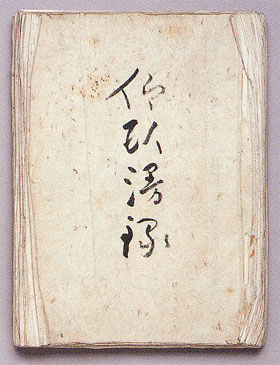 仰臥漫録